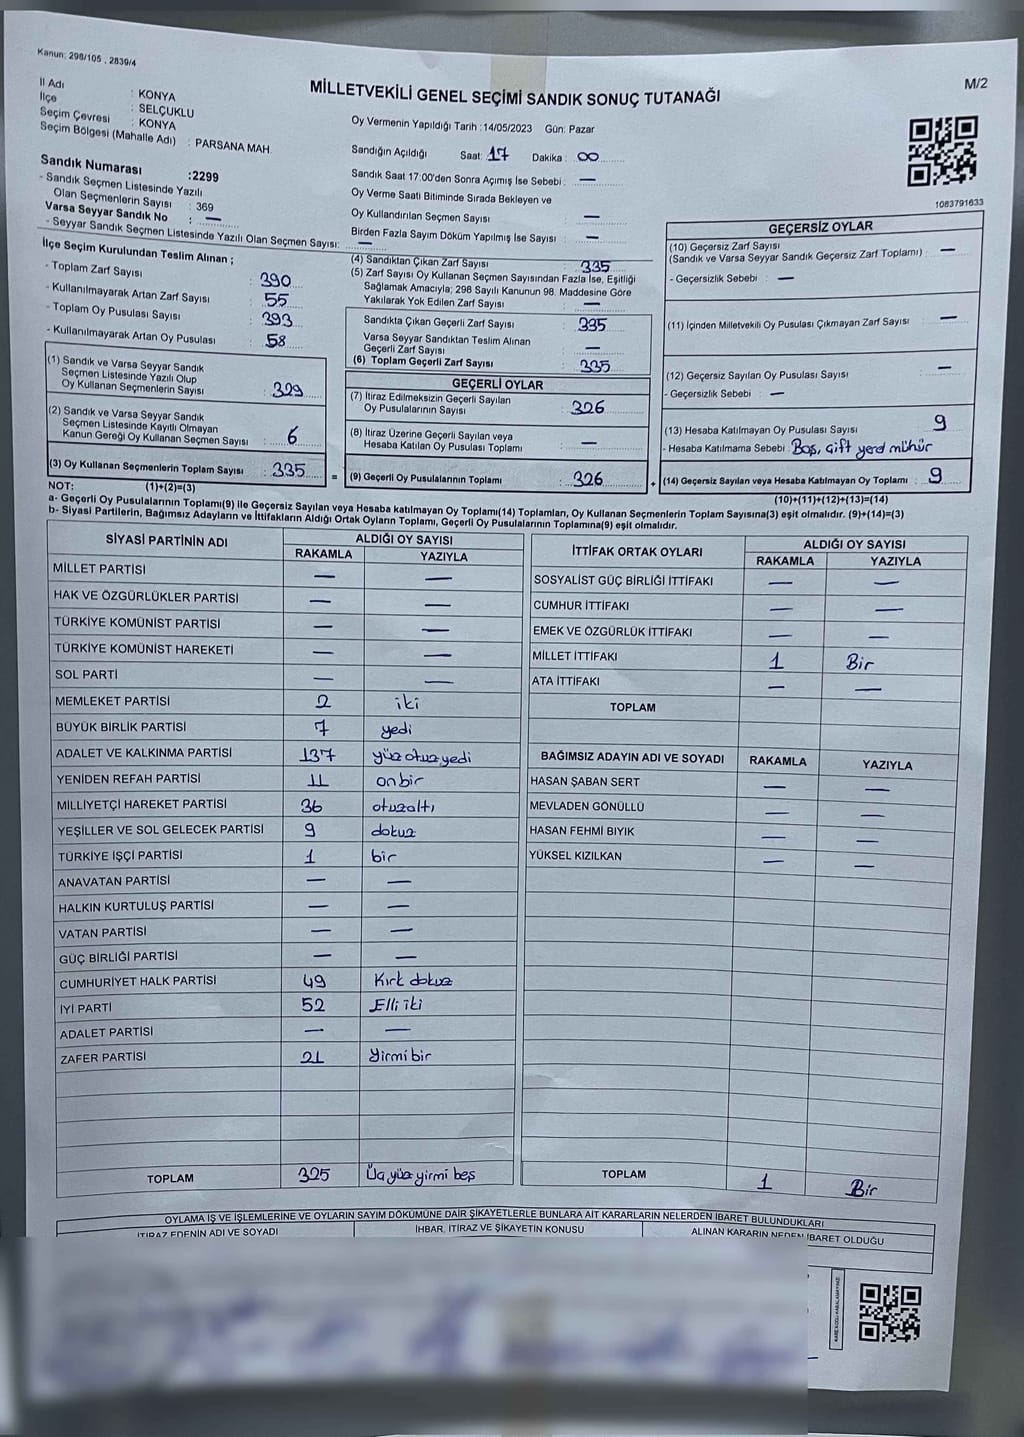 Kanun: 298/105 , 2839/4
M/2
MİLLETVEKİLİ GENEL SEÇİMİ SANDIK SONUÇ TUTANAĞI
İl Adı : KONYA
İlçe : SELÇUKLU
Seçim Çevresi : KONYA
Seçim Bölgesi (Mahalle Adı) : PARSANA MAH.
Sandık Numarası :2299
- Sandık Seçmen Listesinde Yazılı
Olan Seçmenlerin Sayısı : 369
Varsa Seyyar Sandık No : —
- Seyyar Sandık Seçmen Listesinde Yazılı Olan Seçmen Sayısı: —
Oy Vermenin Yapıldığı Tarih :14/05/2023 Gün: Pazar
Sandığın Açıldığı Saat: 17 Dakika : 00
Sandık Saat 17:00'den Sonra Açımış İse Sebebi : —
Oy Verme Saati Bitiminde Sırada Bekleyen ve
Oy Kullandırılan Seçmen Sayısı —
Birden Fazla Sayım Döküm Yapılmış İse Sayısı : —
1083791633
İlçe Seçim Kurulundan Teslim Alınan ;
- Toplam Zarf Sayısı : 390
- Kullanılmayarak Artan Zarf Sayısı : 55
- Toplam Oy Pusulası Sayısı : 393
- Kullanılmayarak Artan Oy Pusulası : 58
(1) Sandık ve Varsa Seyyar Sandık
Seçmen Listesinde Yazılı Olup
Oy Kullanan Seçmenlerin Sayısı : 329
(2) Sandık ve Varsa Seyyar Sandık
Seçmen Listesinde Kayıtlı Olmayan
Kanun Gereği Oy Kullanan Seçmen Sayısı : 6
(3) Oy Kullanan Seçmenlerin Toplam Sayısı : 335
(4) Sandıktan Çıkan Zarf Sayısı : 335
(5) Zarf Sayısı Oy Kullanan Seçmen Sayısından Fazla İse, Eşitliği
Sağlamak Amacıyla; 298 Sayılı Kanunun 98. Maddesine Göre
Yakılarak Yok Edilen Zarf Sayısı : —
Sandıkta Çıkan Geçerli Zarf Sayısı : 335
Varsa Seyyar Sandıktan Teslim Alınan
Geçerli Zarf Sayısı : —
(6) Toplam Geçerli Zarf Sayısı : 335
GEÇERLİ OYLAR
(7) İtiraz Edilmeksizin Geçerli Sayılan
Oy Pusulalarının Sayısı : 326
(8) İtiraz Üzerine Geçerli Sayılan veya
Hesaba Katılan Oy Pusulası Toplamı : —
= (9) Geçerli Oy Pusulalarının Toplamı : 326
GEÇERSİZ OYLAR
(10) Geçersiz Zarf Sayısı
(Sandık ve Varsa Seyyar Sandık Geçersiz Zarf Toplamı) : —
- Geçersizlik Sebebi : —
(11) İçinden Milletvekili Oy Pusulası Çıkmayan Zarf Sayısı —
(12) Geçersiz Sayılan Oy Pusulası Sayısı : —
- Geçersizlik Sebebi : —
(13) Hesaba Katılmayan Oy Pusulası Sayısı 9
- Hesaba Katılmama Sebebi : Boş, Çift yerd mühür
+ (14) Geçersiz Sayılan veya Hesaba Katılmayan Oy Toplamı : 9
NOT: (1)+(2)=(3)
(10)+(11)+(12)+(13)=(14)
a- Geçerli Oy Pusulalarının Toplamı(9) ile Geçersiz Sayılan veya Hesaba katılmayan Oy Toplamı(14) Toplamları, Oy Kullanan Seçmenlerin Toplam Sayısına(3) eşit olmalıdır. (9)+(14)=(3)
b- Siyasi Partilerin, Bağımsız Adayların ve İttifakların Aldığı Ortak Oyların Toplamı, Geçerli Oy Pusulalarının Toplamına(9) eşit olmalıdır.
SİYASİ PARTİNİN ADI ALDIĞI OY SAYISI
RAKAMLA YAZIYLA
MİLLET PARTİSİ — —
HAK VE ÖZGÜRLÜKLER PARTİSİ — —
TÜRKİYE KOMÜNİST PARTİSİ — —
TÜRKİYE KOMÜNİST HAREKETİ — —
SOL PARTİ — —
MEMLEKET PARTİSİ 2 iki
BÜYÜK BİRLİK PARTİSİ 7 yedi
ADALET VE KALKINMA PARTİSİ 137 yüz otuz yedi
YENİDEN REFAH PARTİSİ 11 on bir
MİLLİYETÇİ HAREKET PARTİSİ 36 otuzaltı
YEŞİLLER VE SOL GELECEK PARTİSİ 9 dokuz
TÜRKİYE İŞÇİ PARTİSİ 1 bir
ANAVATAN PARTİSİ — —
HALKIN KURTULUŞ PARTİSİ — —
VATAN PARTİSİ — —
GÜÇ BİRLİĞİ PARTİSİ — —
CUMHURİYET HALK PARTİSİ 49 Kırk dokuz
İYİ PARTİ 52 Elli iki
ADALET PARTİSİ — —
ZAFER PARTİSİ 21 Yirmi bir
TOPLAM 325 Üç yüz yirmi beş
İTTİFAK ORTAK OYLARI ALDIĞI OY SAYISI
RAKAMLA YAZIYLA
SOSYALİST GÜÇ BİRLİĞİ İTTİFAKI — —
CUMHUR İTTİFAKI — —
EMEK VE ÖZGÜRLÜK İTTİFAKI — —
MİLLET İTTİFAKI 1 Bir
ATA İTTİFAKI — —
TOPLAM
BAĞIMSIZ ADAYIN ADI VE SOYADI RAKAMLA YAZIYLA
HASAN ŞABAN SERT — —
MEVLADEN GÖNÜLLÜ — —
HASAN FEHMİ BIYIK — —
YÜKSEL KIZILKAN — —
TOPLAM 1 Bir
OYLAMA İŞ VE İŞLEMLERİNE VE OYLARIN SAYIM DÖKÜMÜNE DAİR ŞİKAYETLERLE BUNLARA AİT KARARLARIN NELERDEN İBARET BULUNDUKLARI
İTİRAZ EDENİN ADI VE SOYADI İHBAR, İTİRAZ VE ŞİKAYETİN KONUSU ALINAN KARARIN NEDEN İBARET OLDUĞU